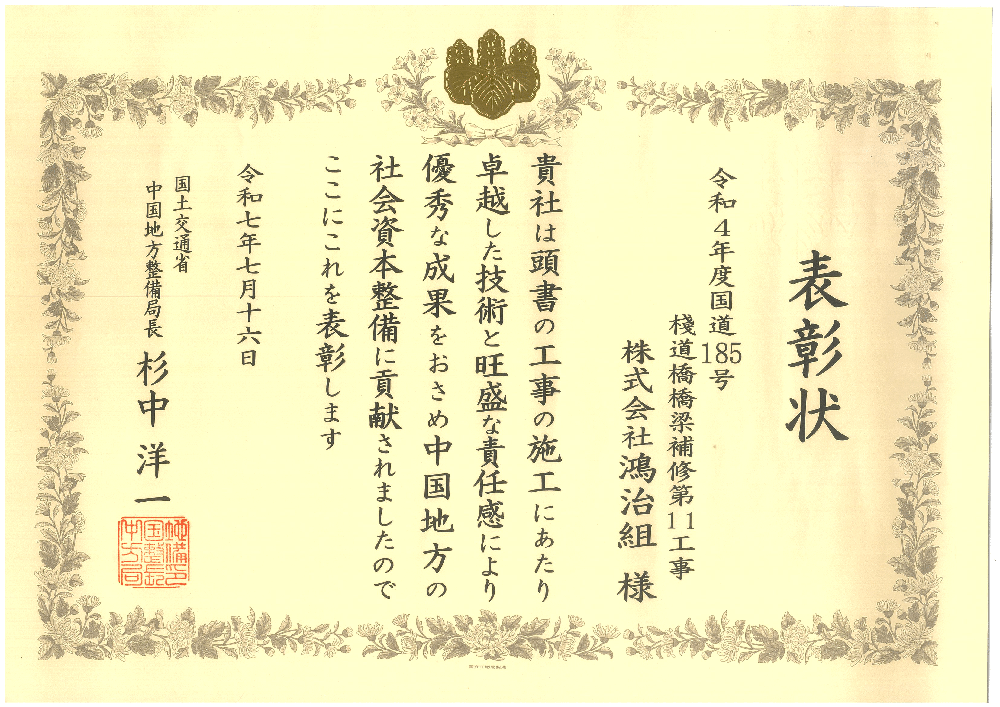 表彰状
令和4年度国道185号
棧道橋橋梁補修第11工事
株式会社鴻治組 様
貴社は頭書の工事の施工にあたり
卓越した技術と旺盛な責任感により
優秀な成果をおさめ中国地方の
社会資本整備に貢献されましたので
ここにこれを表彰します
令和七年七月十六日
国土交通省
中国地方整備局長 杉中洋一